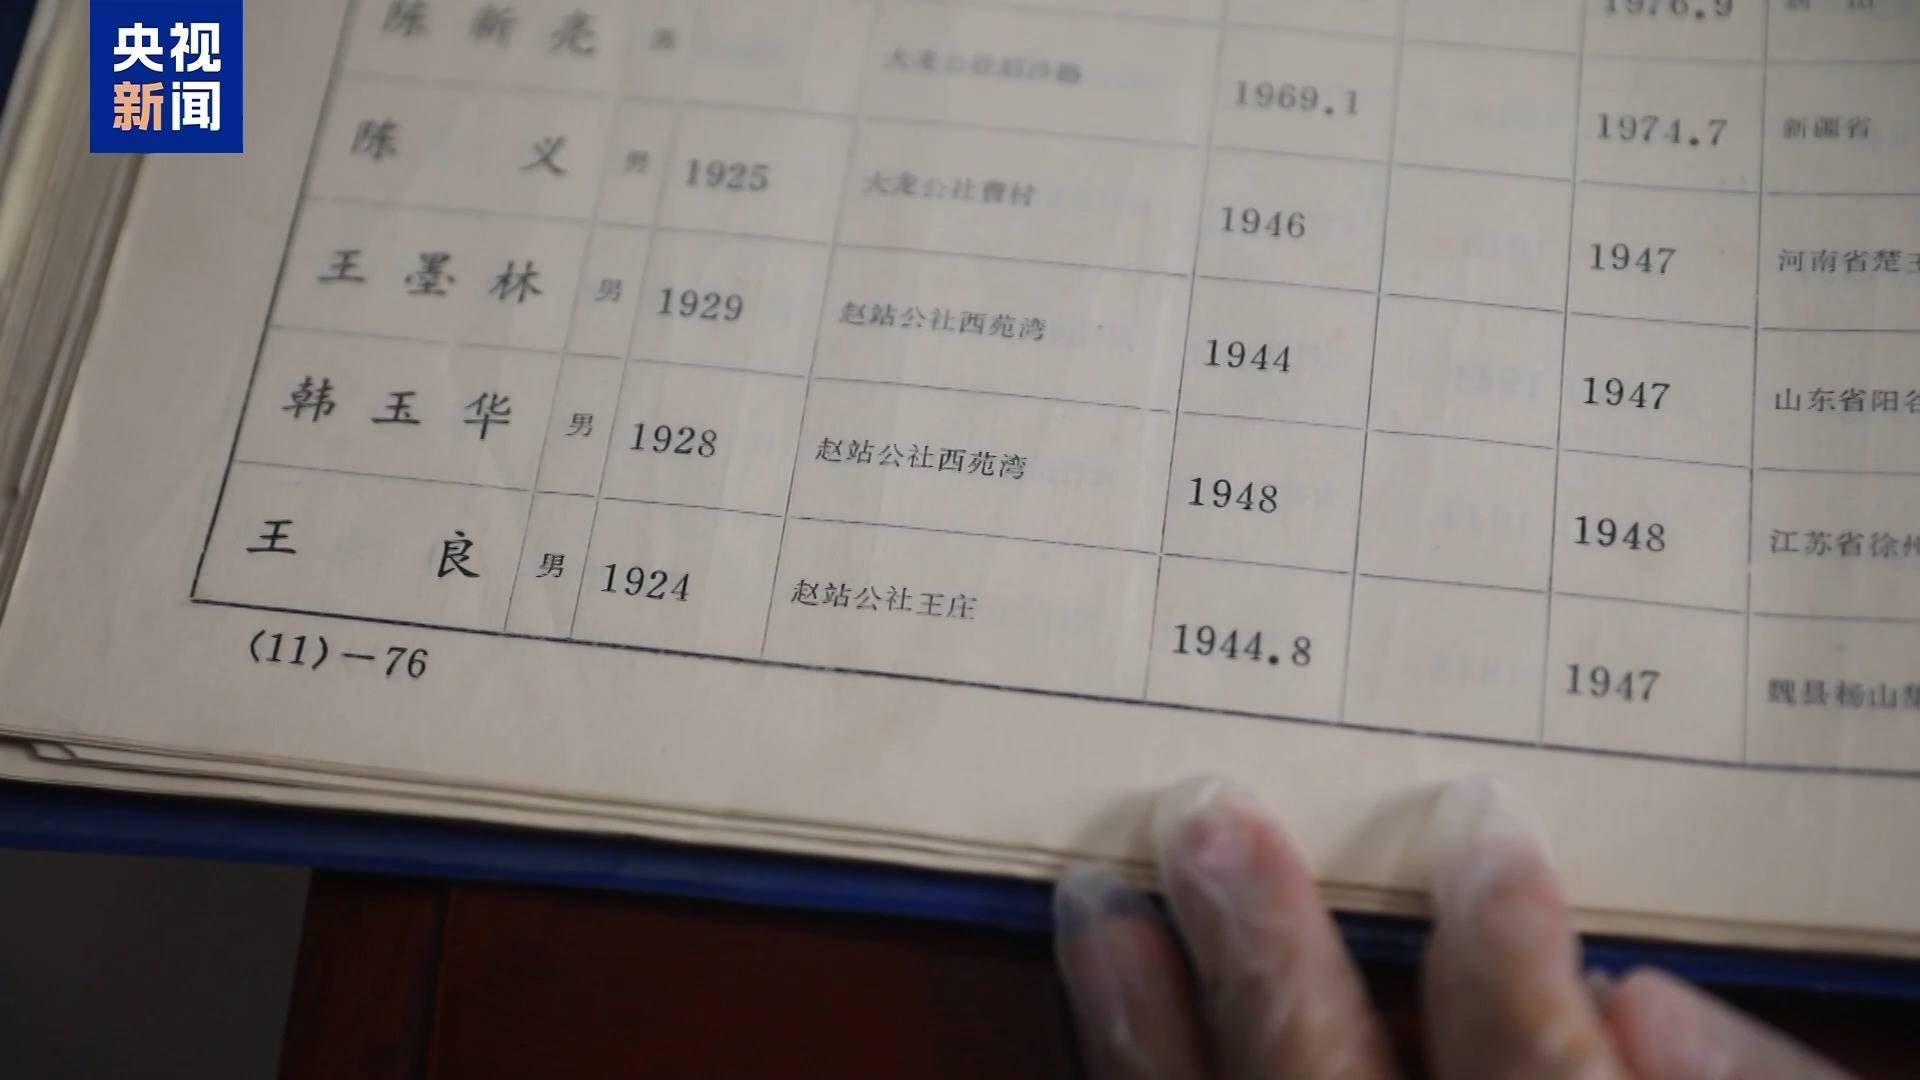 央视
新闻
1976.9
陈新亮 男 1969.1 1974.7 新疆省
陈义 男 1925 大龙公社曹村 1946 1947 河南省楚王
王墨林 男 1929 赵站公社西苑湾 1944 1947 山东省阳谷
韩玉华 男 1928 赵站公社西苑湾 1948 1948 江苏省徐州
王良 男 1924 赵站公社王庄 1944.8 1947 魏县杨山集
(11)—76